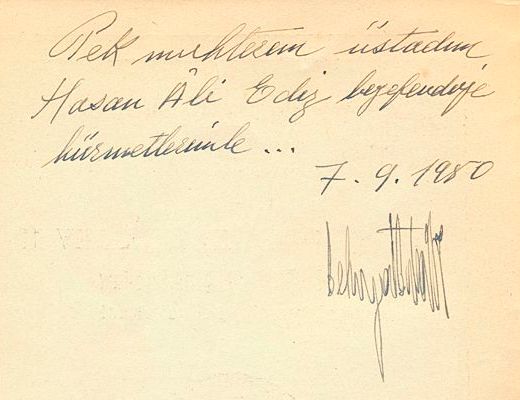 Pek muhterem üstadım
Hasan Âli Ediz beyefendiye
hürmetlerimle ...
7. 9. 1950